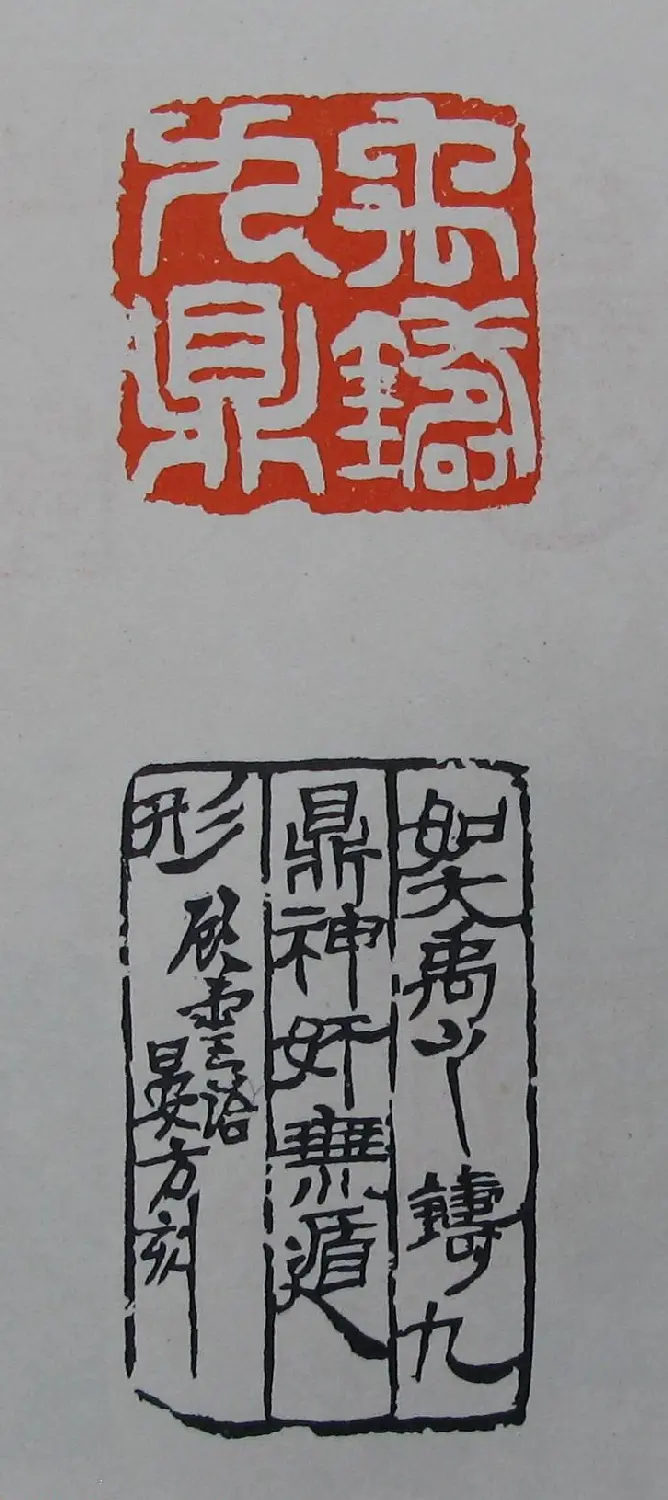 禹鑄
九鼎
如大禹之鑄九
鼎神奸無遁
形
語
晏方刻